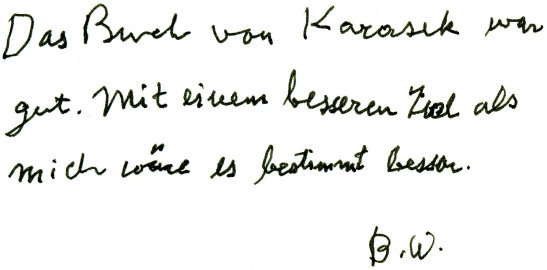 Das Buch von Karasek war
gut. Mit einem besseren Ziel als
mich wäre es bestimmt besser.
B.W.